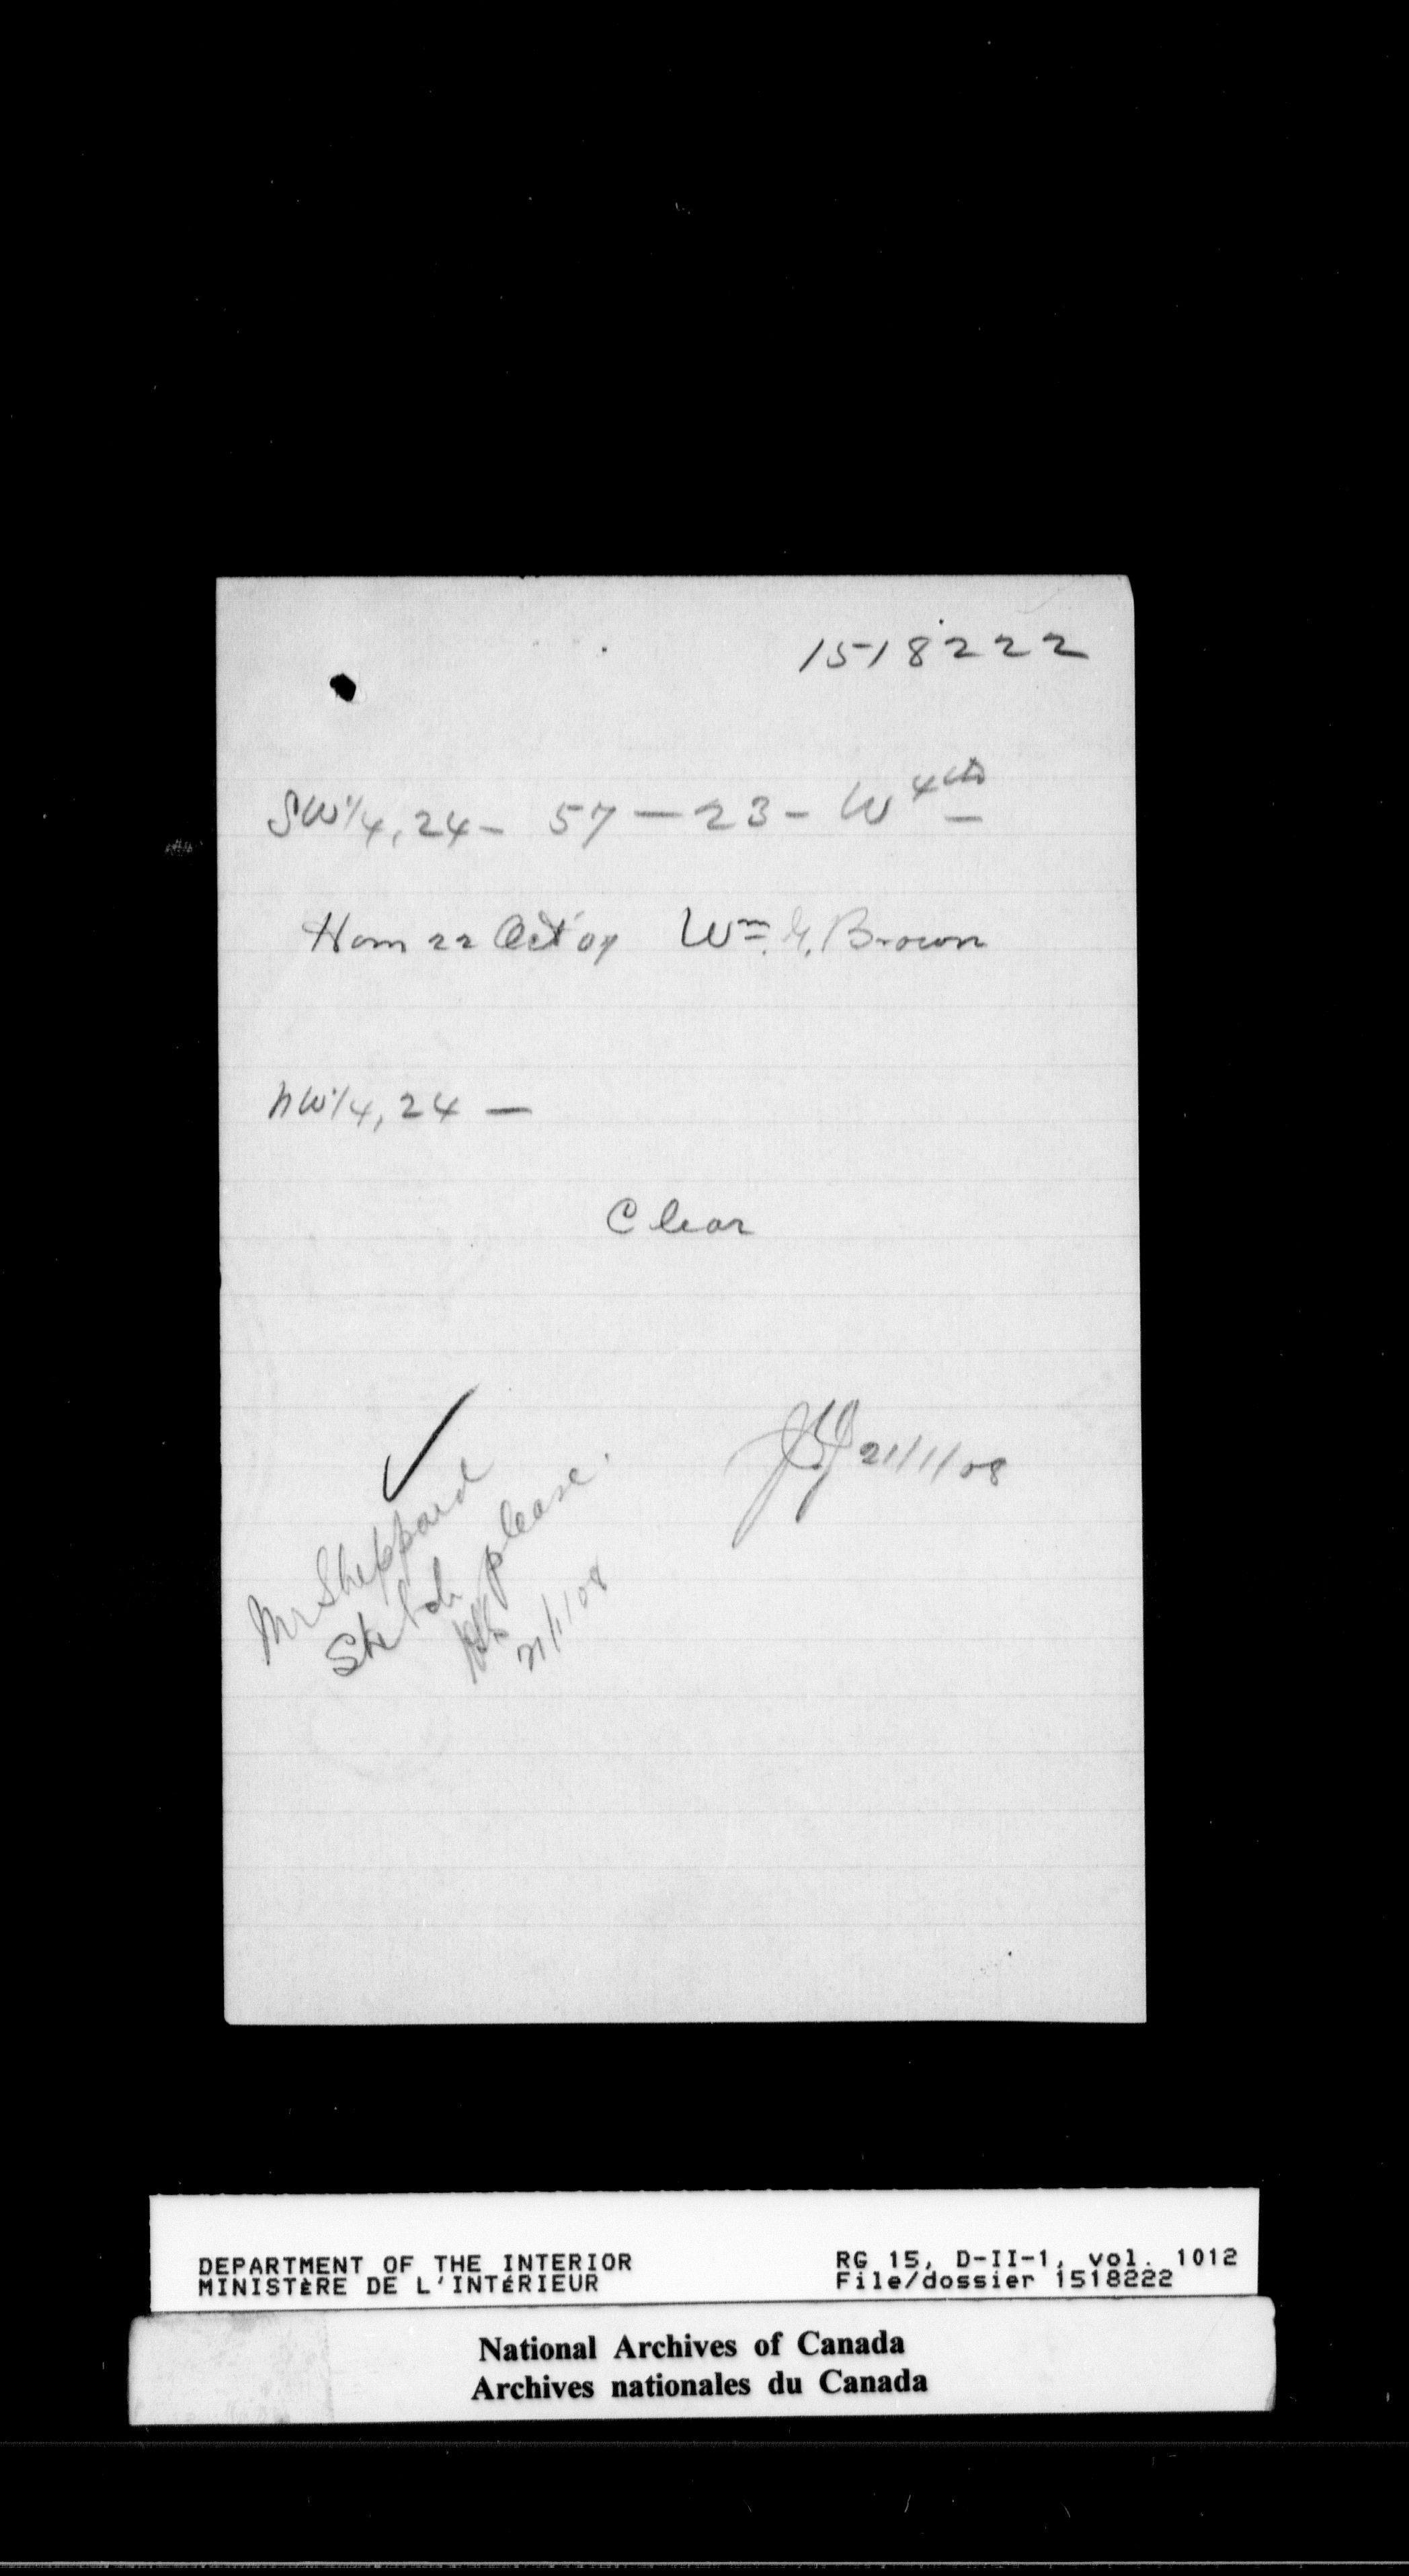 1518222
SW1/4, 24 - 57 - 23 - W 4th
Hom 22 Oct 07 Wm. G. Brown
NW1/4, 24 -
Clear
21/1/08
Mr Sheppard
Sketch please.
21/1/08
DEPARTMENT OF THE INTERIOR
MINISTÈRE DE L'INTÉRIEUR
RG 15, D-II-1, vol. 1012
File/dossier 1518222
National Archives of Canada
Archives nationales du Canada